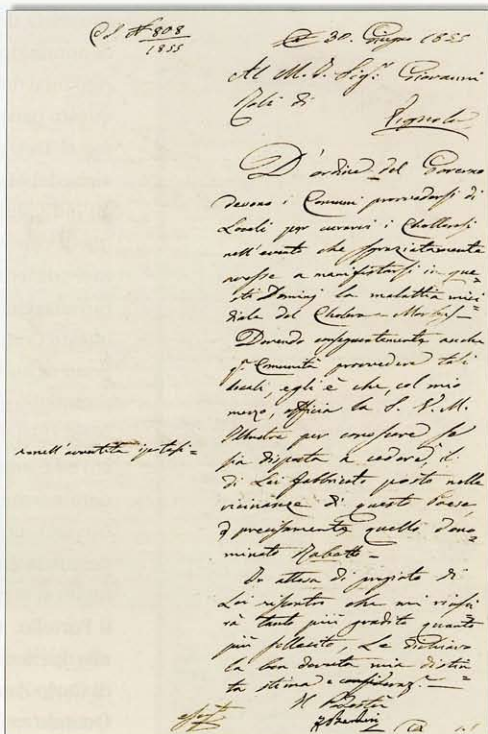 N.° 808
1855
30. Giugno 1855
Al M. I. Sig.r Giovanni
di
Vignola
D'ordine del Governo
devono i Comuni provvedersi di
Locali per curarvi i Cholerosi
nell'evento che sgraziatamente
avesse a manifestarsi in que=
sti Dominj la malattia mici
diale del Cholera Morbus=
Dovendo conseguentemente anche
q.a Comunità provvedere tali
locali, egli è che, col mio
mezzo, officia la S. V. M.
Illustre per conoscere se
sia disposta a cedere,
nell'avvertita ipotesi=
di Lei fabbricato posto nelle
vicinanze di questo Paese,
e precisamente quello deno=
minato
In attesa di pregiato di
Lei riscontro che mi riusci
rà tanto più gradito quanto
più sollecito, Le dichiaro
la ben dovuta mia distin
ta stima e consideraz.e=
Il Podestà